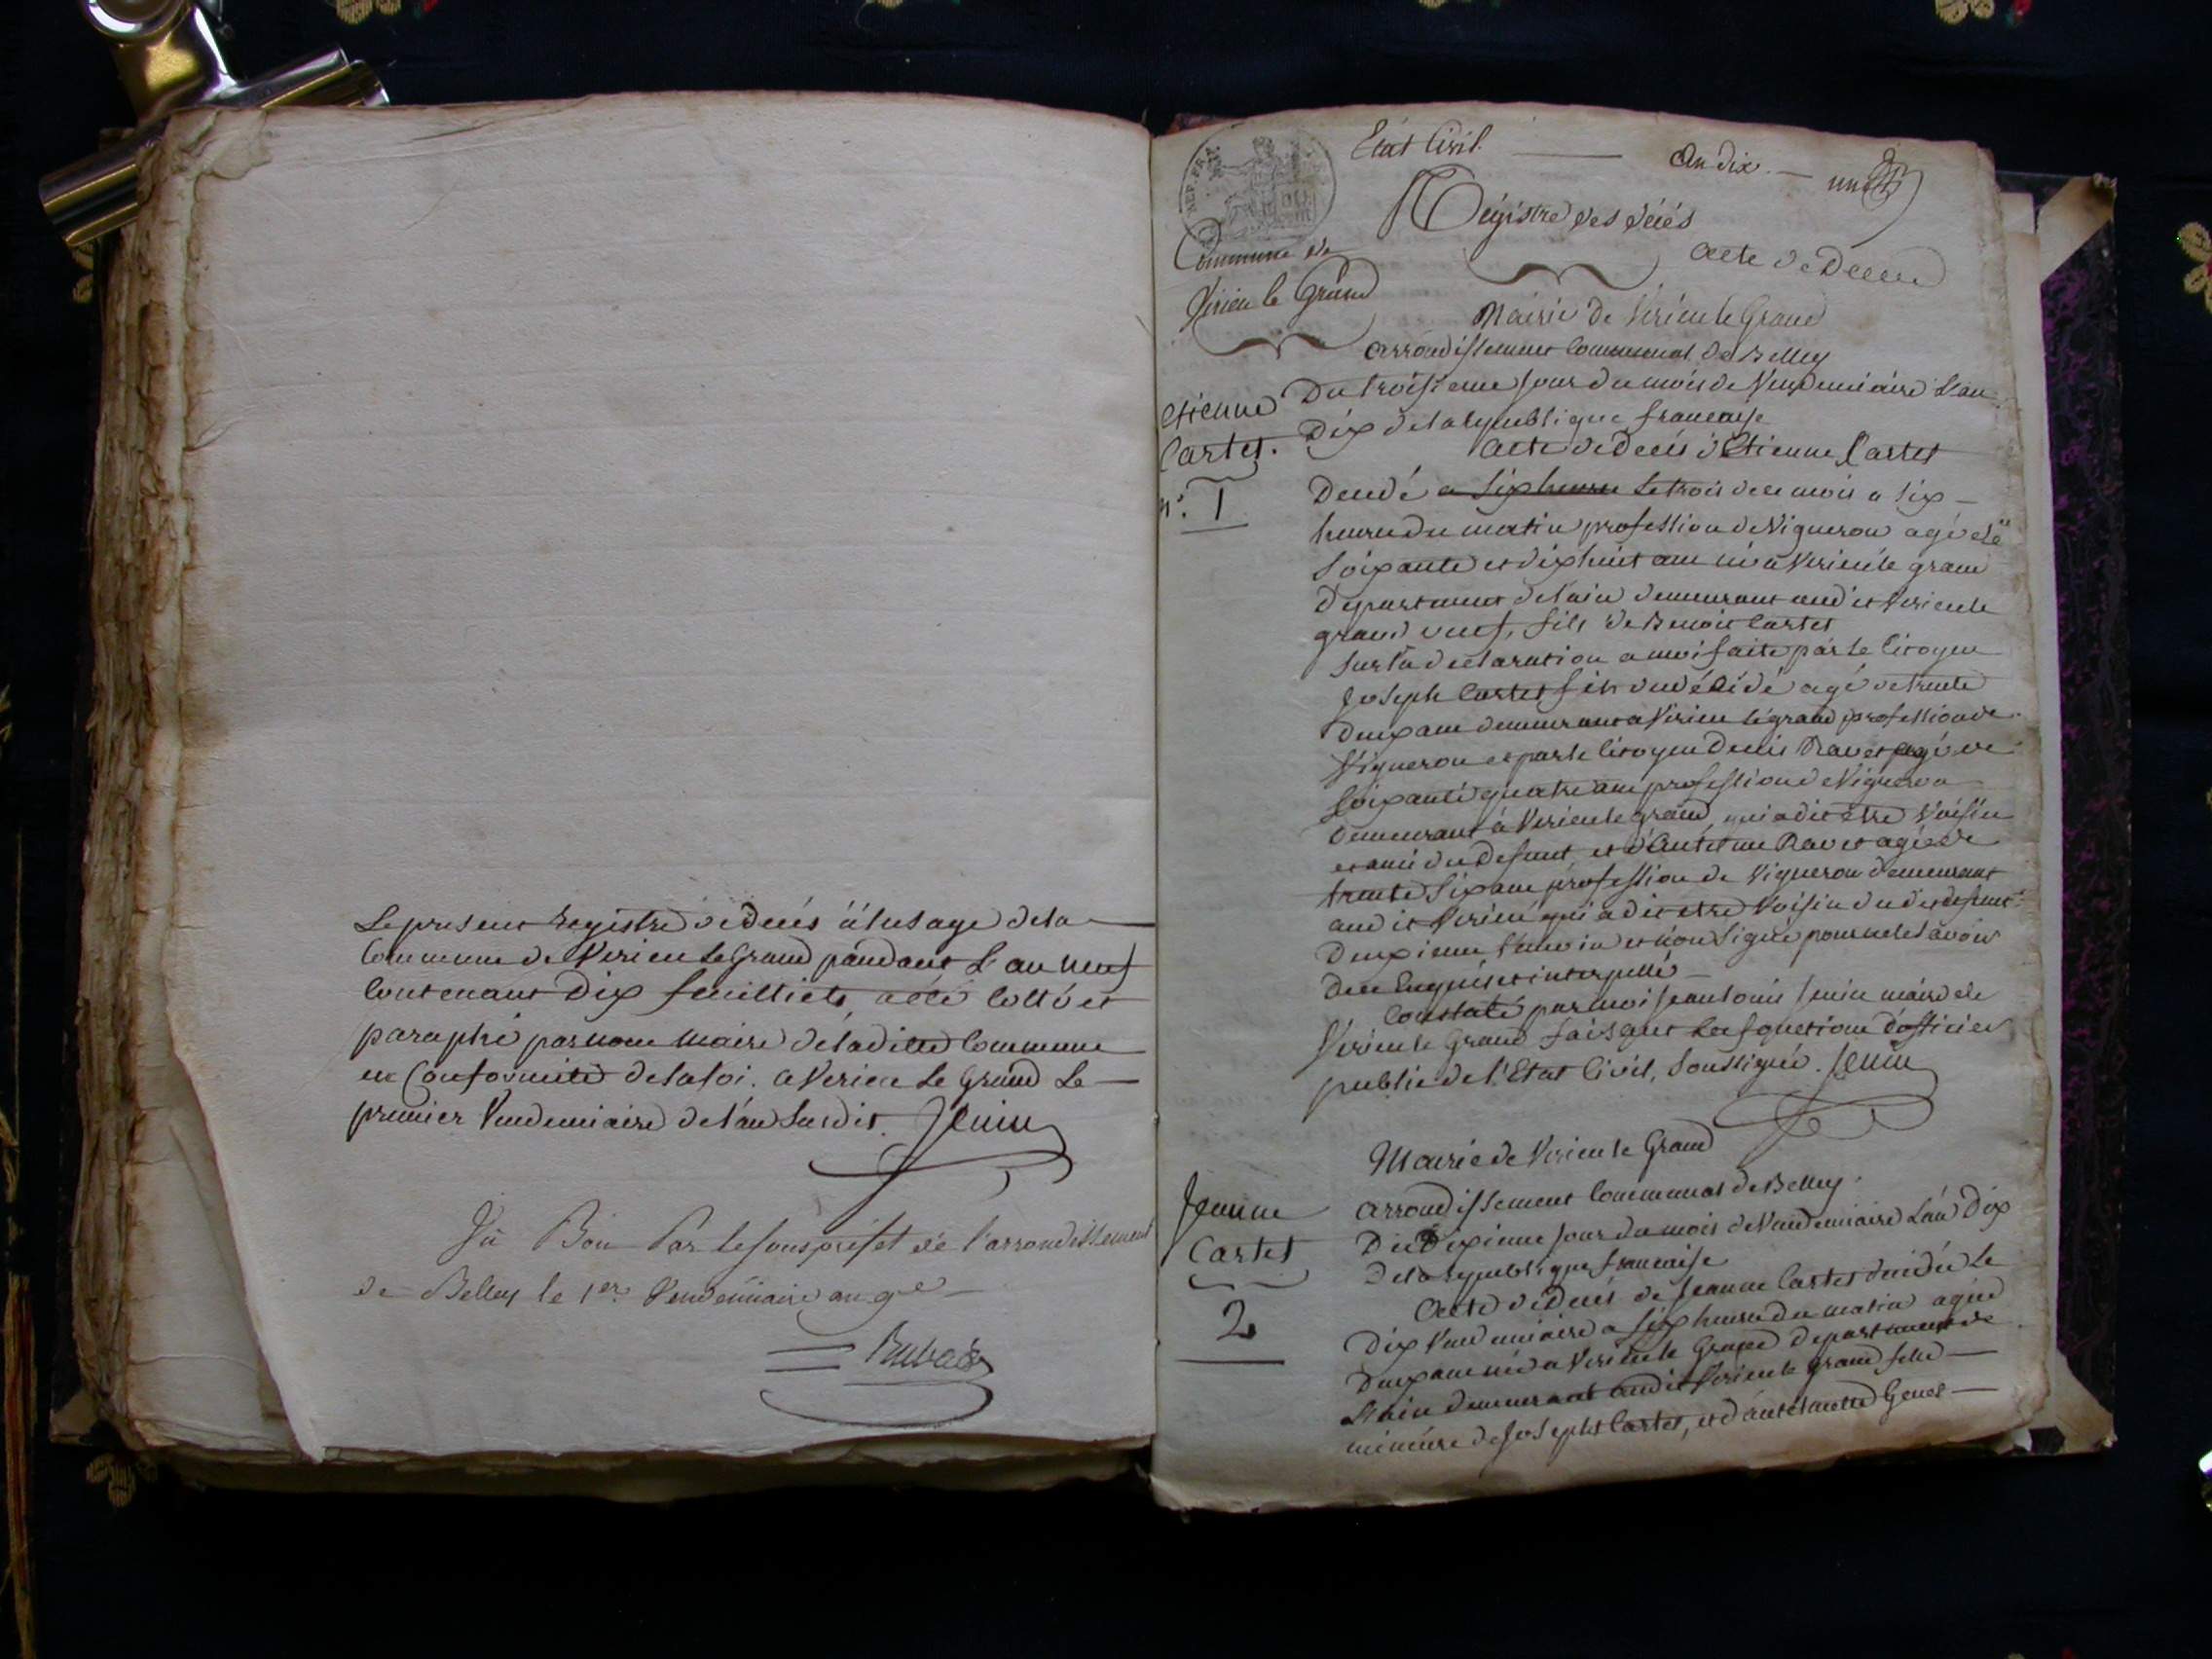 Le present Registre de decés à lusage de la
Commune de Virieu Le Grand pandant L'an neuf
Contenant Dix feuilliets a été Cotté et
paraphé par nous Maire de la ditte Commune
en Conformité de la loi. a Virieu Le Grand Le
premier Vendemiaire de l'an susdit. Jenin
Vu Bon Par le sous préfet de l'arrondissement
de Belley le 1er Vendémiaire an 9e
REP. FRA.
Etat Civil. An dix. un
Régistre des décés
Commune de
Virieu le Grand
Acte de Decés
Mairie de Virieu le Grand
arrondissement Communal de Belley
Du troisieme jour du mois de Vendemiaire L'an
Dix de la republique francaise
etienne
Cartet.
Acte de Decés d'Etienne Cartet
n°. 1
Decedé a six heures Le trois de ce mois a six
heures du matin profession de Vigneron agé de
soixante et dix huit ans né a Virieu le grand
Departement de l'ain demeurant audit Virieu le
grand veuf, fils de Benoit Cartet
sur la declaration a moi faite par le Citoyen
Joseph Cartet fils du décédé agé de trente
Deux ans demeurant a Virieu le grand profession de
Vigneron et par le Citoyen Denis Ravet agé de
soixante quatre ans profession de Vigneron
Demeurant à Virieu le grand, qui a dit être Voisin
et ami du Defunt, et d'Antelme Ravet agé de
trente six ans profession de Vigneron demeurant
audit Virieu qui a dit etre Voisin du dit defunt
Deuxieme temoin et non signé pour ne le savoir
De ce Enquis et interpellé
Constaté par moi Jean Louis Jenin maire de
Virieu le Grand faisant Les fonctions d'officier
public de l'Etat Civil, Soussigné. Jenin
Mairie de Virieu le Grand
arrondissement Communal de Belley.
Jeanne
Cartet
2
Du Dixieme jour du mois de Vendemiaire L'an Dix
De la republique francaise
Acte de Decés de Jeanne Cartet decedée Le
Dix Vendemiaire a six heures du matin agée
Deux ans née a Virieu le Grand departement de
L'ain demeurant audit Virieu le grand fille
mineure de Joseph Cartet, et d'Antelmette